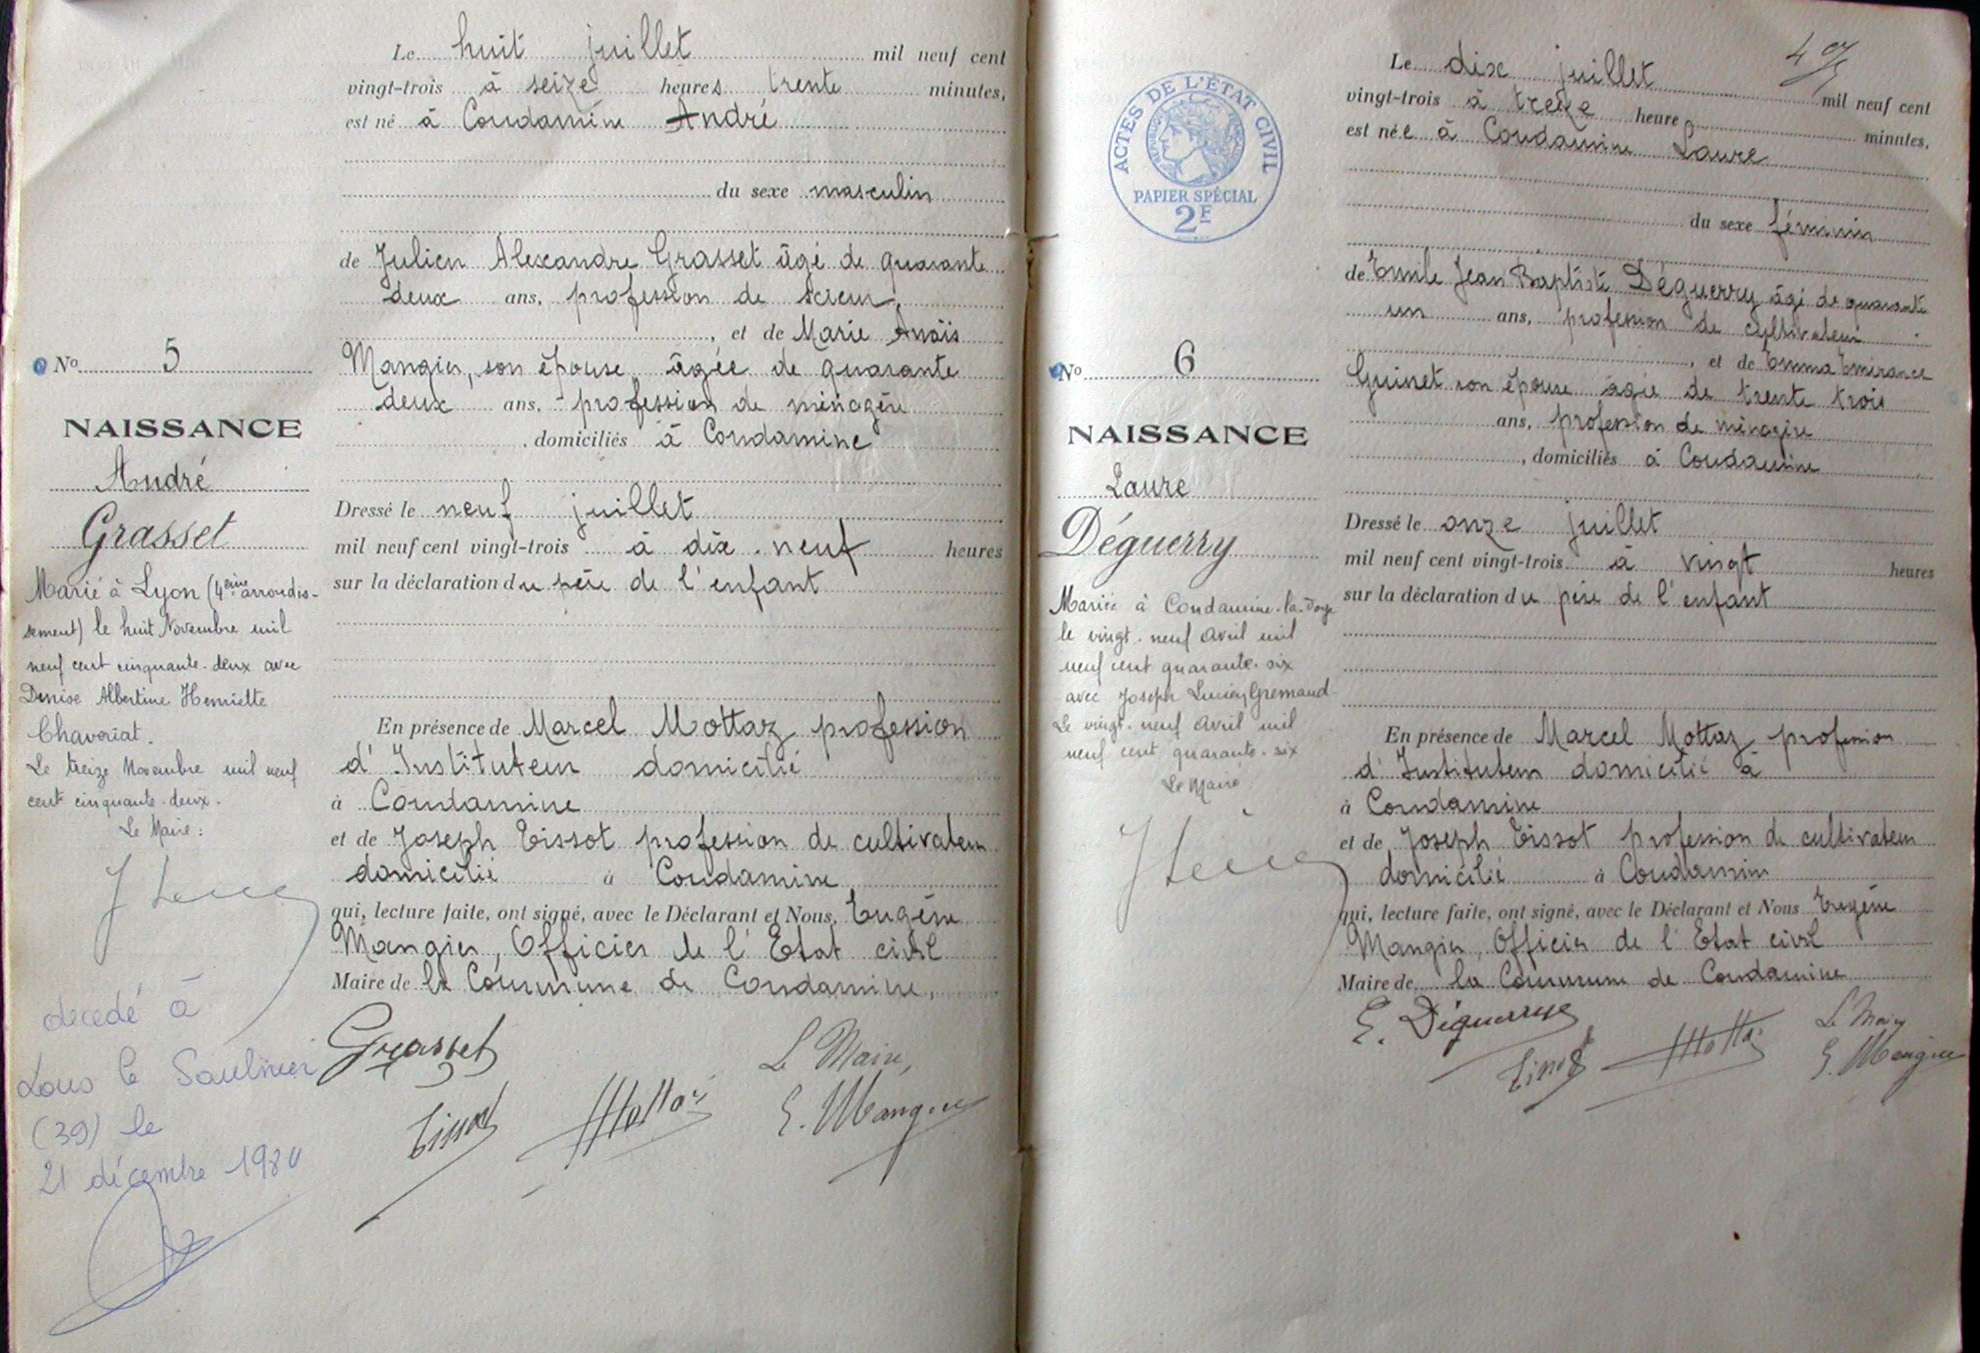 Le huit juillet mil neuf cent
vingt-trois à seize heures trente minutes,
est né à Condamine André
du sexe masculin
de Julien Alexandre Grasset âgé de quarante
deux ans, profession de scieur,
, et de Marie Anaïs
Mangin, son épouse, âgée de quarante
deux ans, profession de ménagère
, domiciliés à Condamine
Dressé le neuf juillet
mil neuf cent vingt-trois à dix-neuf heures
sur la déclaration du père de l'enfant
En présence de Marcel Mottaz profession
d'Instituteur domicilié
à Condamine
et de Joseph Tissot profession de cultivateur
domicilié à Condamine,
qui, lecture faite, ont signé, avec le Déclarant et Nous, Eugène
Mangin, Officier de l'Etat civil
Maire de la Commune de Condamine,
Grasset
Le Maire,
Tissot
E. Mangin
No 5
NAISSANCE
André
Grasset
Marié à Lyon (4ème arrondis-
sement) le huit Novembre mil
neuf cent cinquante-deux avec
Denise Albertine Henriette
Chavoriat.
Le treize Novembre mil neuf
cent cinquante-deux.
Le Maire:
decedé à
Lons le Saulnier
(39) le
21 décembre
Le dix juillet mil neuf cent
vingt-trois à treize heures minutes,
est née à Condamine Laure
du sexe féminin
de Emile Jean Baptiste Déguerry âgé de quarante
un ans, profession de cultivateur
, et de Emma Emirance
Guinet son épouse âgée de trente trois
ans, profession de ménagère
, domiciliés à Condamine
Dressé le onze juillet
mil neuf cent vingt-trois à vingt heures
sur la déclaration du père de l'enfant
En présence de Marcel Mottaz profession
d'Instituteur domicilié à
à Condamine
et de Joseph Tissot profession de cultivateur
domicilié à Condamine
qui, lecture faite, ont signé, avec le Déclarant et Nous Eugène
Mangin, Officier de l'Etat civil
Maire de la Commune de Condamine
E. Déguerry
Le Maire
Tissot
E. Mangin
ACTES DE L'ÉTAT CIVIL
PAPIER SPÉCIAL
2F
No 6
NAISSANCE
Laure
Déguerry
Mariée à Condamine-la-Doye
le vingt-neuf avril mil
neuf cent quarante-six
avec Joseph Lucien Gremaud
Le vingt-neuf avril mil
neuf cent quarante-six
Le Maire